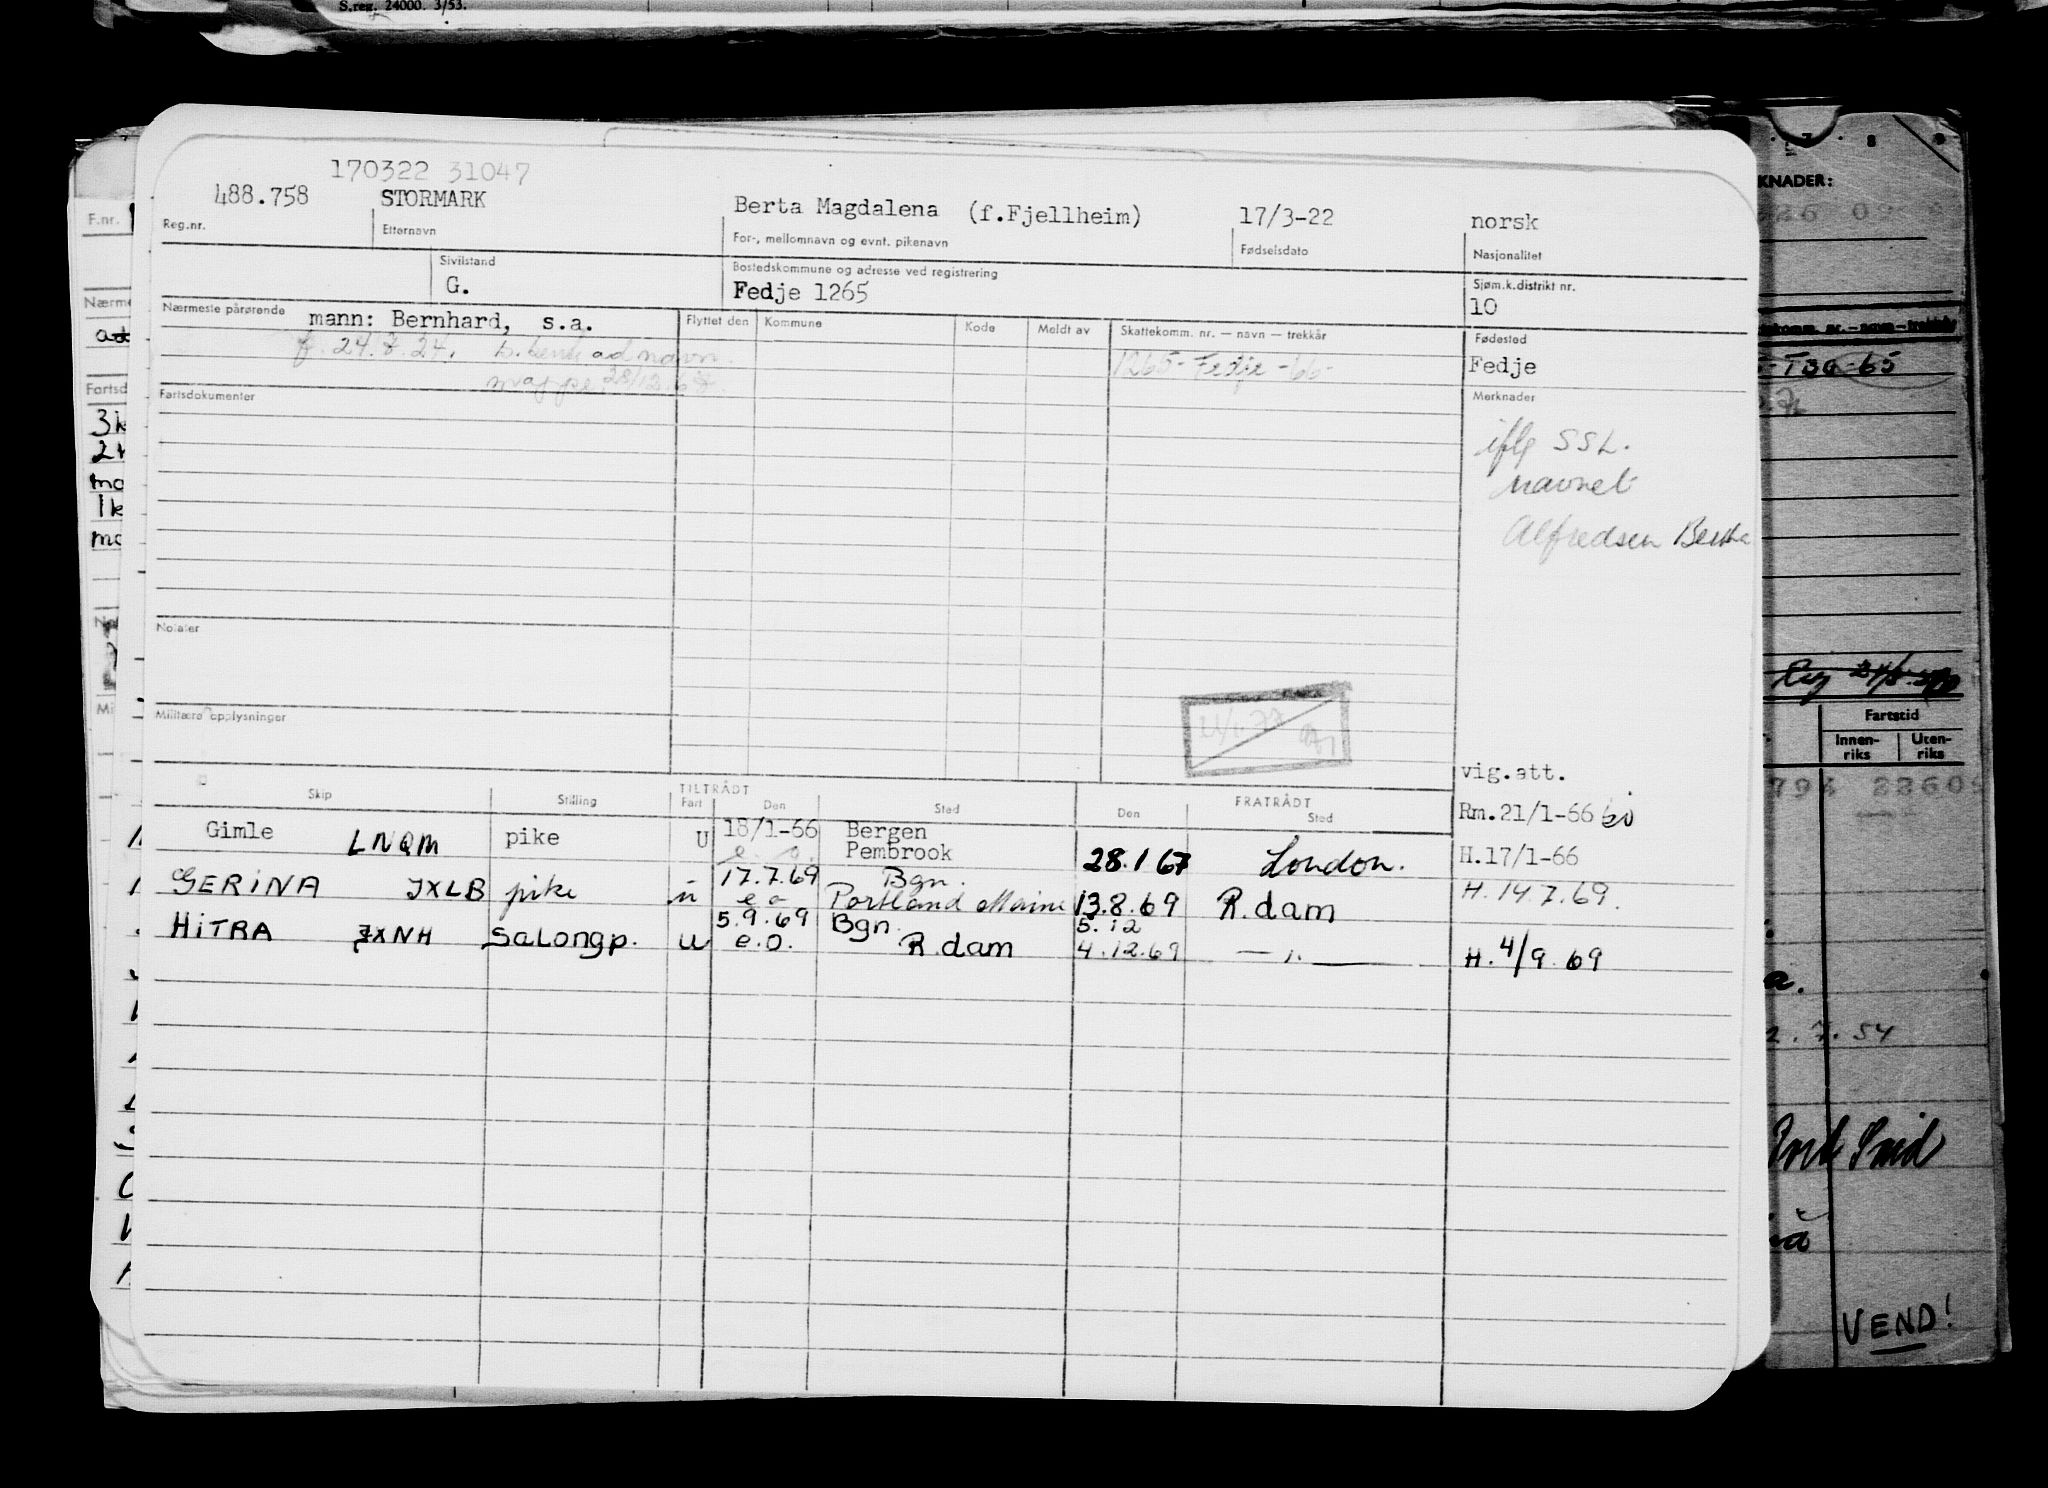 S.reg. 24000. 3/53.
170322 31047
488.758 STORMARK Berta Magdalena (f.Fjellheim) 17/3-22 norsk
Reg.nr. Etternavn For-, mellomnavn og evnt. pikenavn Fødselsdato Nasjonalitet
Sivilstand Bostedskommune og adresse ved registrering Sjøm.k.distrikt nr.
G. Fedje 1265 10
Nærmeste pårørende mann: Bernhard, s.a. Flyttet den Kommune Kode Meldt av Skattekomm. nr. — navn — trekkår Fødested
1265-Fedje-66- Fedje
mappe 28/12.
Fartsdokumenter Merknader
iflg SSL.
navnet
Alfredsen Berta
Notater
Militære opplysninger
vig.att.
Skip Stilling TILTRÅDT Fart Den Sted FRATRÅDT Den Sted
Rm.21/1-66
Gimle LNQM pike U 18/1-66 Bergen
e.o. Pembrook 28.1 67 London. H.17/1-66
GERINA JXLB pike u 17.7.69 Bgn.
e o Portland Maine 13.8.69 R.dam H.14.7.69.
HITRA JXNH Salongp. u 5.9.69 Bgn. 5.12
e.o. R.dam 4.12.69 — " — H.4/9.69
F.nr.
Nærme
Fartsd
3k
mo
1k
mo
Mi
7 8 9
KNADER:
-65
Fartstid
Innen-riks Uten-riks
a.
2.7.54
VEND!